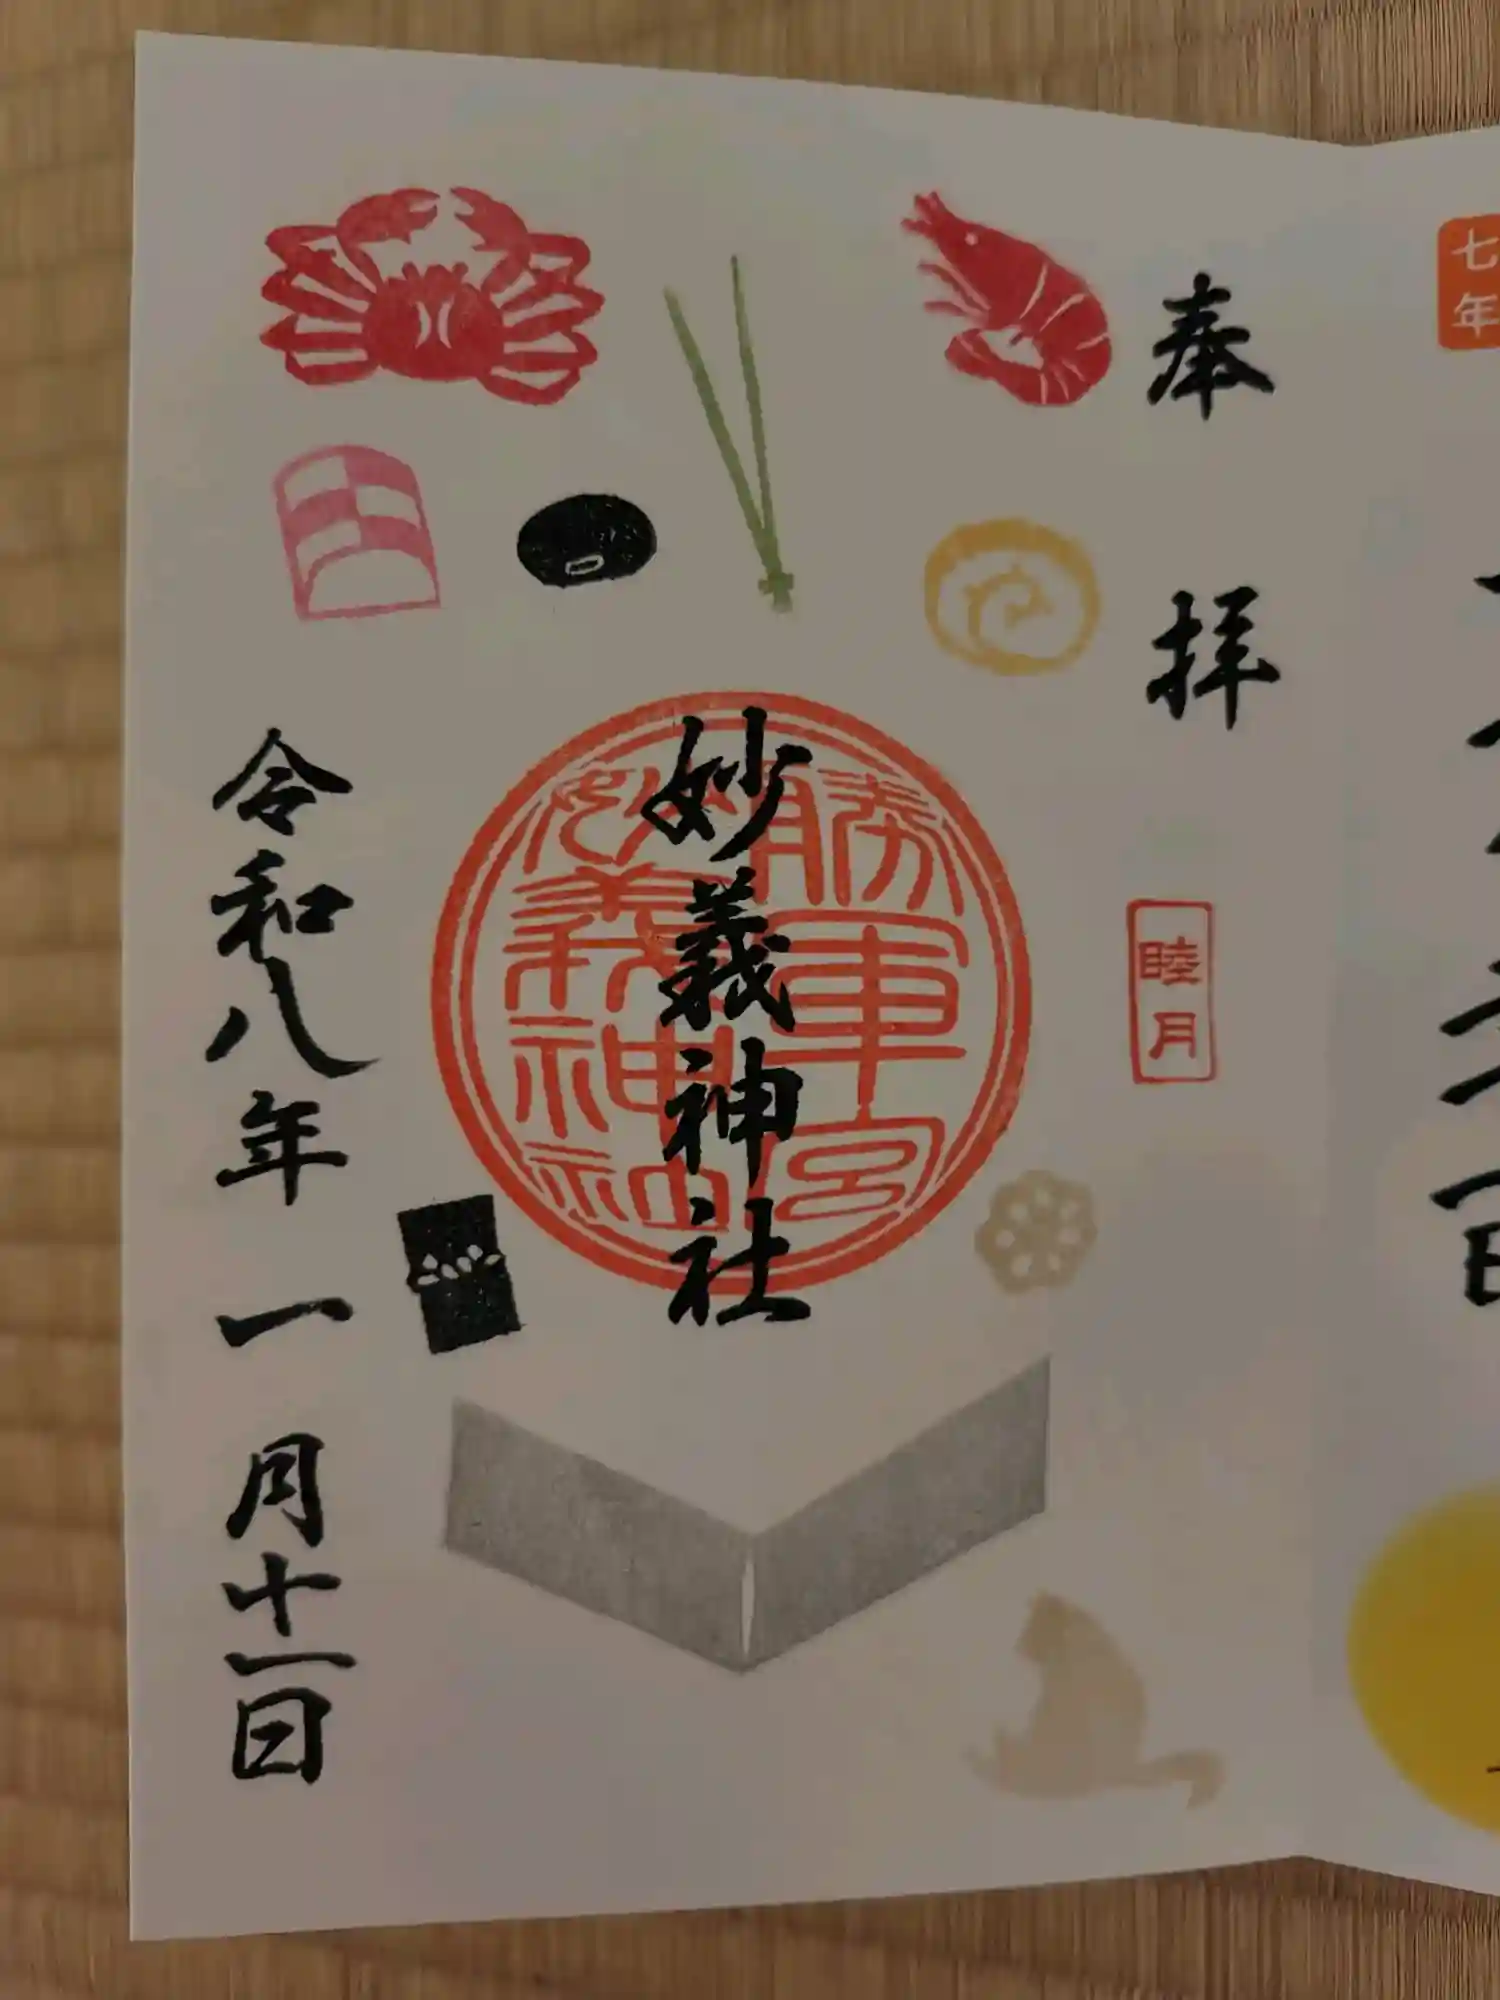 奉拝
睦月
妙義神社
勝軍宮
妙義神社
令和八年一月十一日
七年